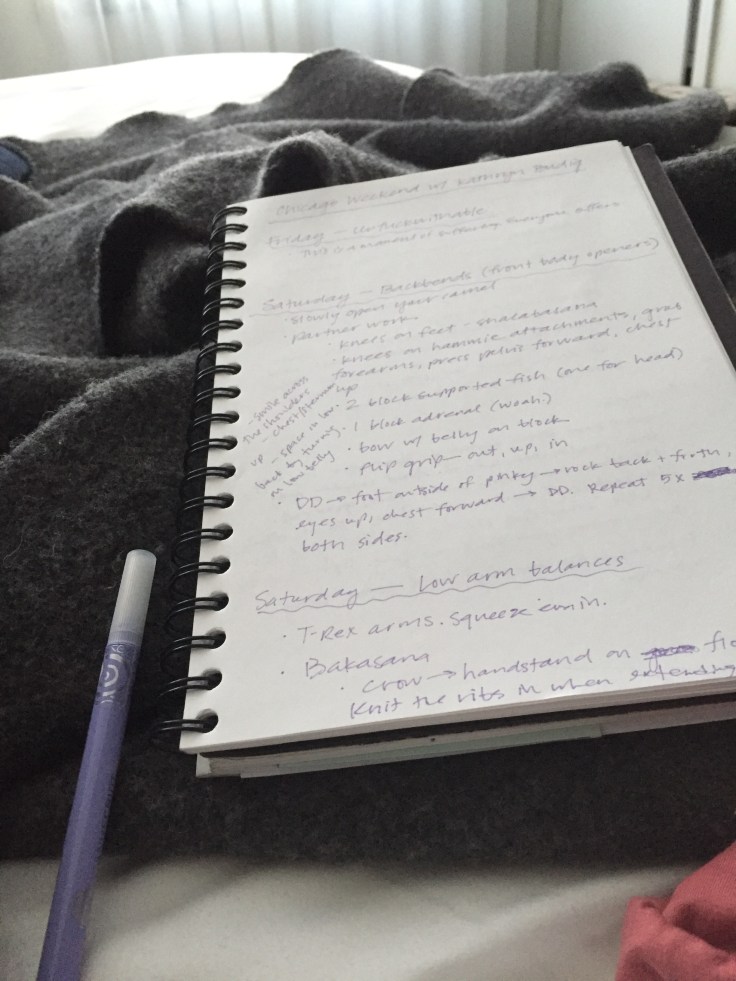 Chicago Weekend w/ Kathryn Budig
Friday — Unfuckwithable
This is a moment of
everyone
Saturday — Backbends (front body openers)
· Slowly open your camel
· Partner work
· knees on feet - shalabasana
· knees on hammie attachments, grab
forearms, press pelvis forward, chest
up
· 2 block supported fish (one for head)
· 1 block adrenal (woah!)
· bow w/ belly on block
· flip grip - out, up, in
- smile across
the shoulders
- chest/sternum
up - space in low
back by turning
on low belly
· DD → foot outside of pinky → rock back + forth,
eyes up, chest forward → DD. Repeat 5x
both sides.
Saturday — Low arm balances
· T-Rex arms. Squeeze 'em in.
· Bakasana
· Crow → handstand on flo
Knit the ribs in when extending